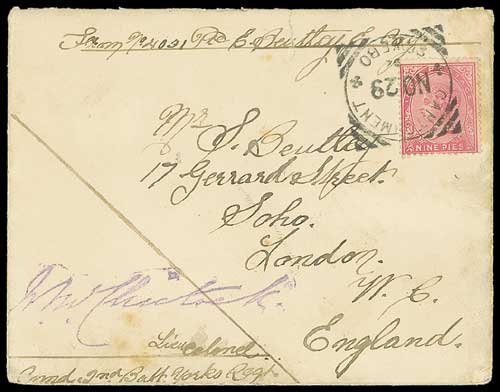 From No 4021 Pte E. Bentley
CANTONMENT
No. 29
NINE PIES
Mr S. Bentley
17 Gerrard Street
Soho.
London.
W. C.
England.
Lieu Colonel.
Comd. 2nd Batt Yorks Regt.